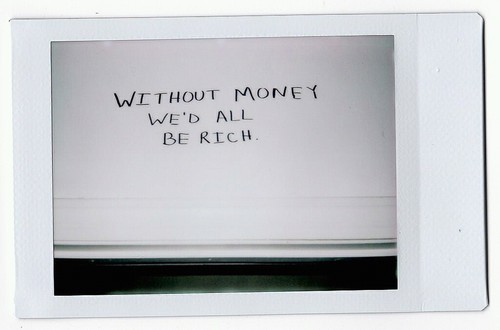 WITHOUT MONEY
WE'D ALL
BE RICH.